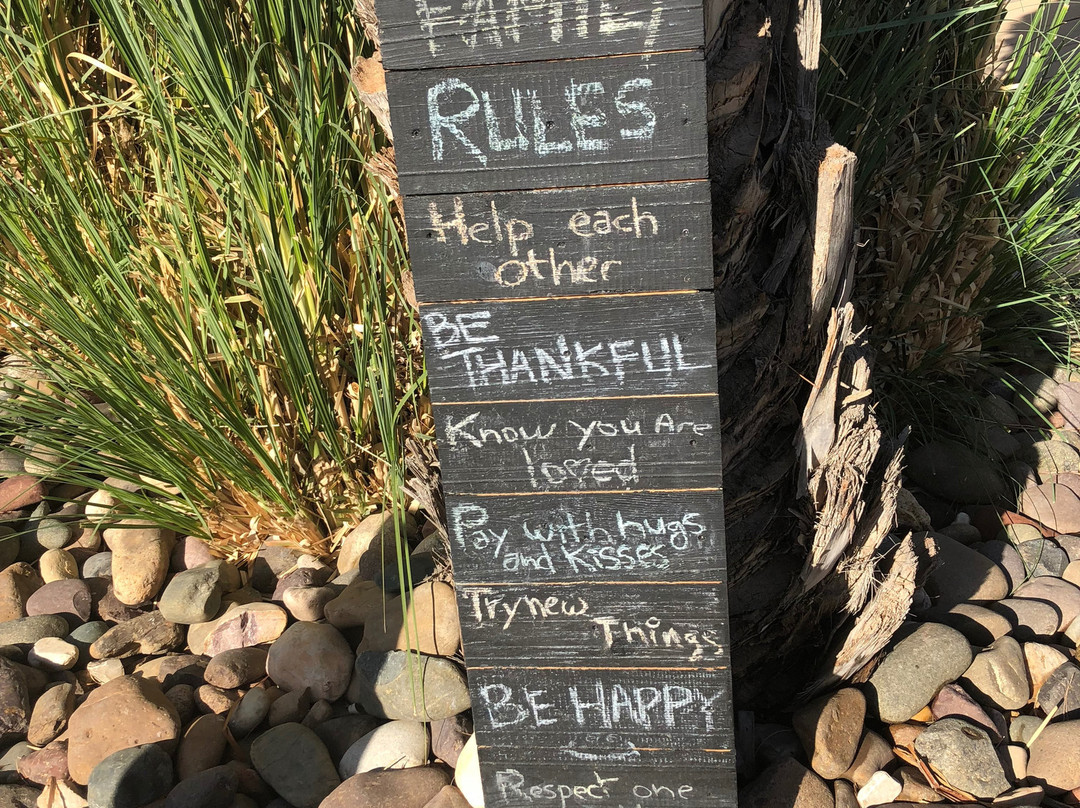 FAMILY
RULES
Help each
other
BE
THANKFUL
Know you Are
loved
Pay with hugs
and Kisses
Try new
Things
BE HAPPY
Respect one